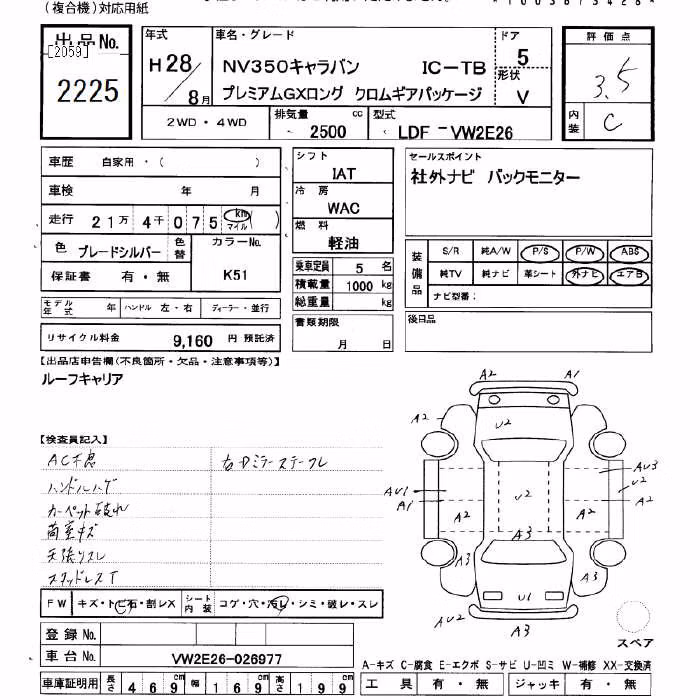 (複合機)対応用紙
出品No.
[2059]
2225
年式
H28/8月
車名・グレード
NV350キャラバン IC-TB
プレミアムGXロング クロムギアパッケージ
ドア
5
形状
V
評価点
3.5
内装
C
2WD・4WD
排気量
2500 cc
型式
LDF-VW2E26
車歴 自家用・( )
車検 年 月
走行 21万4千075 km マイル ( )
色 ブレードシルバー 色替
カラーNo.
K51
保証書 有・無
モデル年式 年 ハンドル 左・右 ディーラー・並行
リサイクル料金 9,160 円 預託済
シフト
IAT
冷房
WAC
燃料
軽油
乗車定員 5 名
積載量 1000 kg
総重量 kg
書類期限
月 日
セールスポイント
社外ナビ バックモニター
装備品
S/R 純A/W P/S P/W ABS
純TV 純ナビ 革シート 外ナビ エアB
ナビ型番:
後日品
【出品店申告欄(不良箇所・欠品・注意事項等)】
ルーフキャリア
【検査員記入】
AC不良
右Dミラーステーワレ
ハンドルハゲ
カーペット破れ
荷室キズ
天張りスレ
スタッドレスT
FW キズ・トビ石・割レX
シート内装 コゲ・穴・汚レ・シミ・破レ・スレ
登録No.
車台No. VW2E26-026977
車庫証明用 長さ 469 cm 幅 169 cm 高さ 199 cm
A2 A1
A2 U2
AU3
AU1 U2 U2
A1 A2 A2 A2
A3
A3 A3
U1
AU2 A3
スペア
A-キズ C-腐食 E-エクボ S-サビ U-凹ミ W-補修 XX-交換済
工具 有・無 ジャッキ 有・無